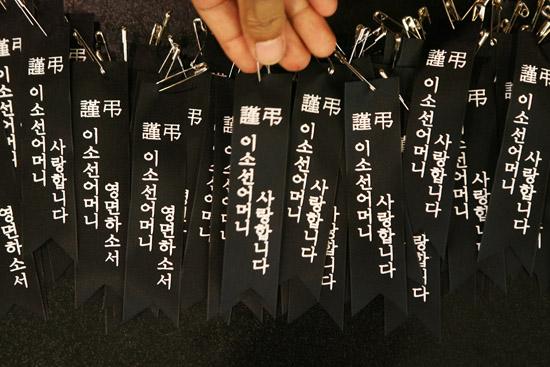 영면하소서
謹弔
이소선어머니
사랑합니다
謹弔
이소선어머니
영면하소서
謹弔
이소선어머니
영면하소서
謹弔
이소선어머니
사랑합니다
謹弔
이소선어머니
사랑합니다
謹弔
이소선어머니
사랑합니다
랑합니다
謹弔
이소선어머니
사랑합니다
謹弔
이소선어머니
사랑합니다